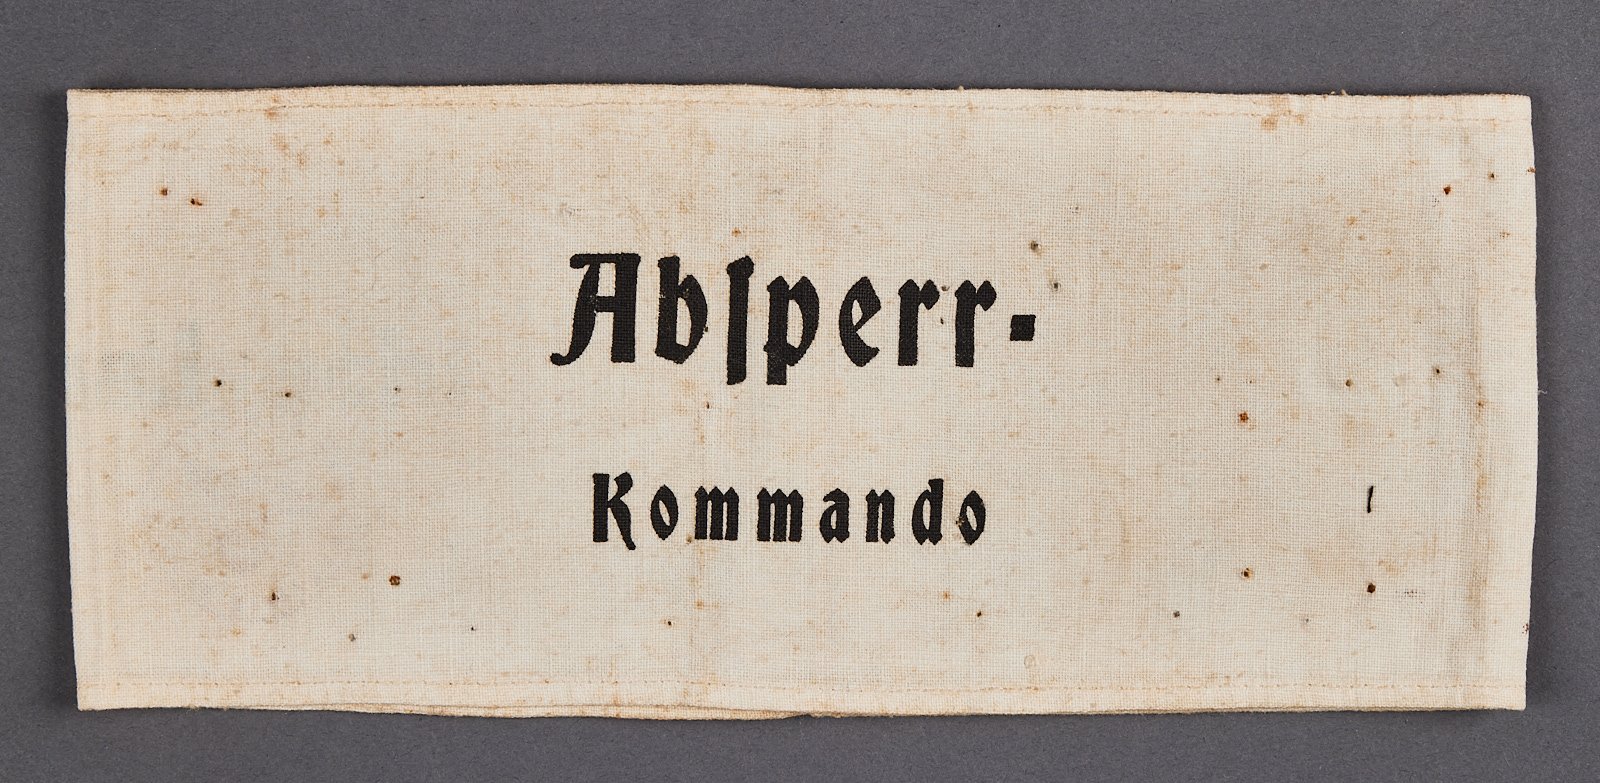 Abſperr-
Kommando